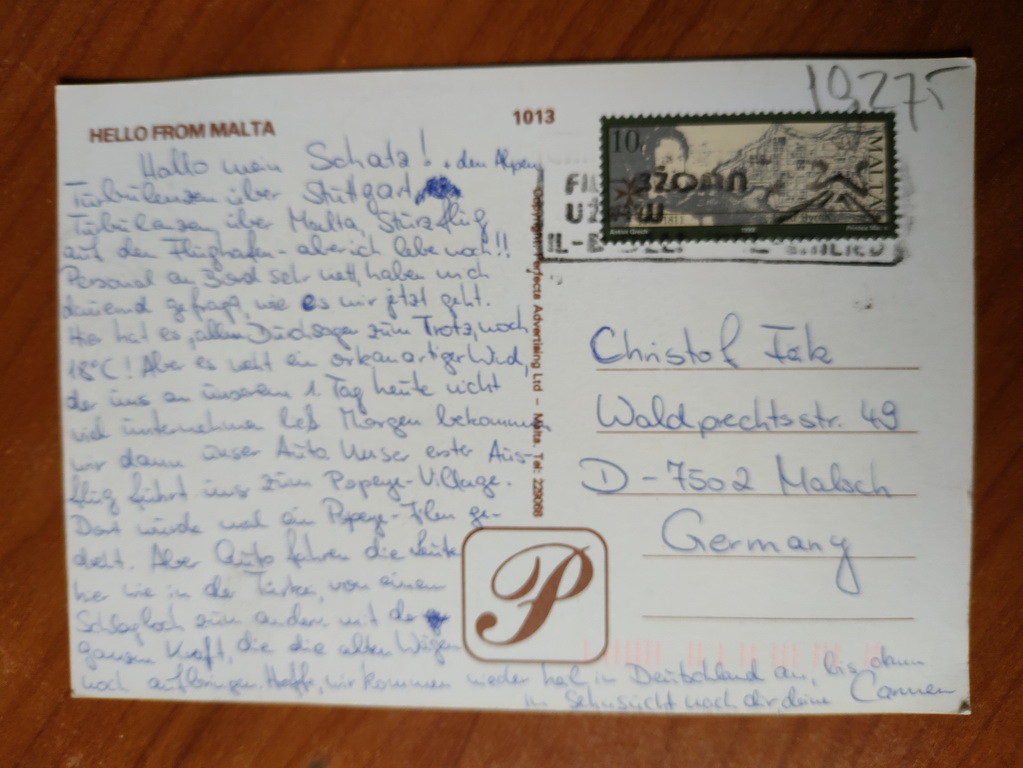 19275
HELLO FROM MALTA
1013
Hallo mein Schatz!
Turbulenzen über Stuttgart + den Alpen
Turbulenzen über Malta, Sturzflug
auf den Flughafen - aber ich lebe noch!!
Personal an Bord sehr nett, haben mich
dauernd gefragt, wie es mir jetzt geht.
Hier hat es, allen Durchsagen zum Trotz, noch
18°C! Aber es weht ein orkanartiger Wind,
der uns an unserem 1. Tag heute nicht
viel unternehmen ließ. Morgen bekommen
wir dann unser Auto. Unser erster Aus-
flug führt uns zum Popeye-Village.
Dort wurde mal ein Popeye-Film ge-
dreht. Aber Auto fahren die Leute
hier wie in der Türkei, von einem
Schlagloch zum andern mit der
ganzen Kraft, die die alten Wägen
noch aufbringen. Hoffe, wir kommen wieder heil in Deutschland an, bis dann
in Sehnsucht nach dir, deine Carmen
Copyright: Perfecta Advertising Ltd – Malta. Tel: 229068
P
10c
MALTA
UŻAW
Christof Fak
Waldprechtsstr. 49
D-7502 Malsch
Germany